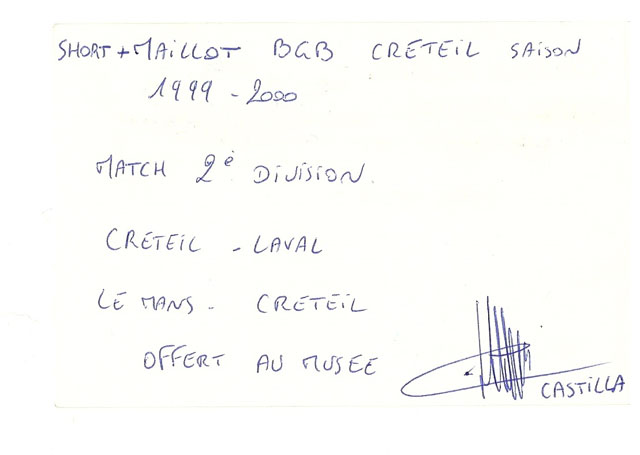 SHORT + MAILLOT BGB CRÉTEIL SAISON
1999 - 2000
MATCH 2è DIVISION.
CRÉTEIL - LAVAL
LE MANS - CRÉTEIL
OFFERT AU MUSÉE
CASTILLA